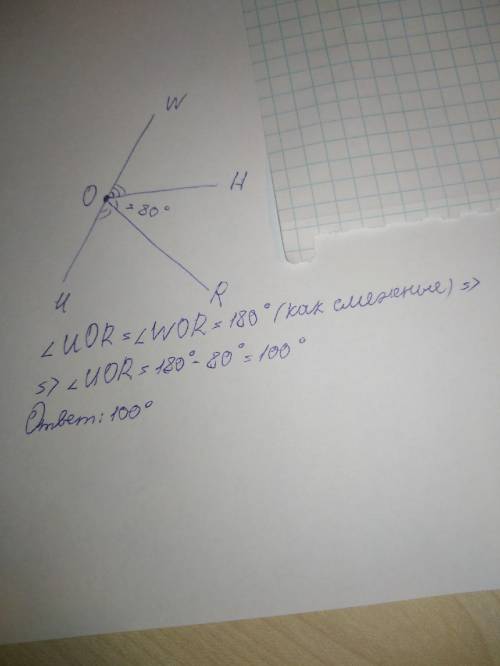 W
O
H
= 80°
И
R
∠ИOR = ∠WOR = 180° (как смежные) =>
=> ∠ИOR = 180° - 80° = 100°
Ответ: 100°